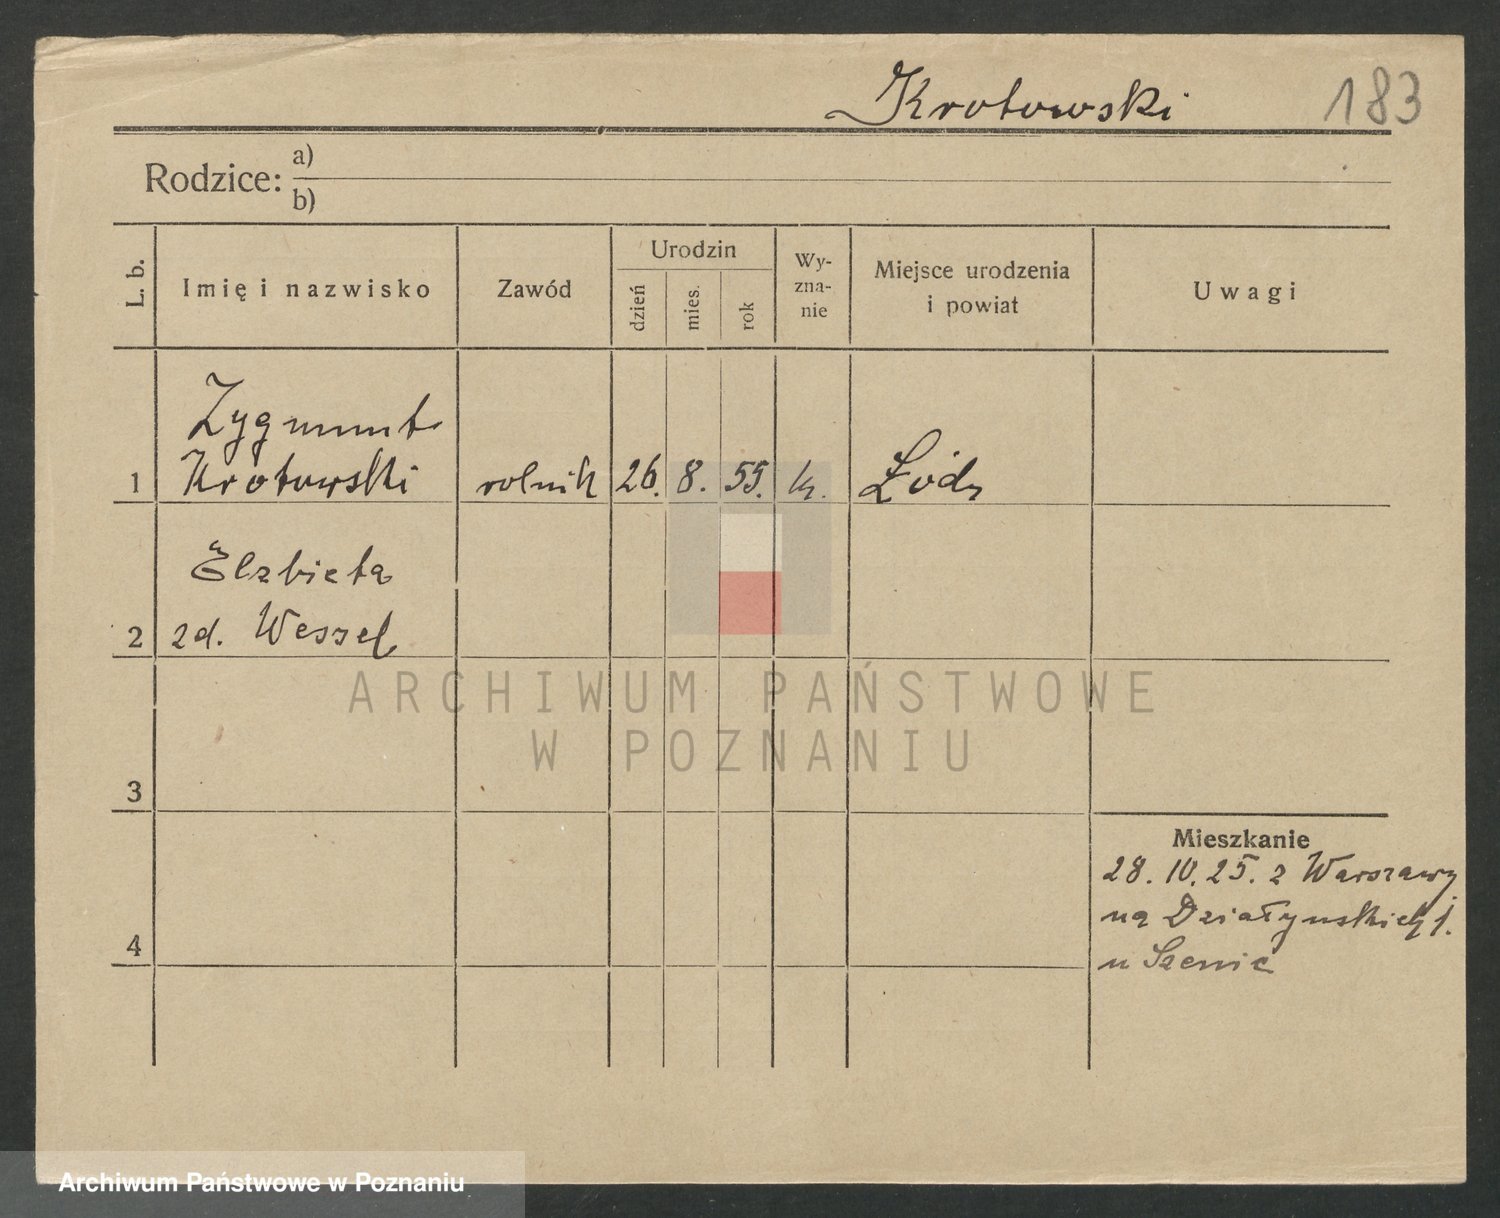 Krotowski 183
Rodzice: a)
b)
L. b.
Imię i nazwisko
Zawód
Urodzin
dzień
mies.
rok
Wy-
zna-
nie
Miejsce urodzenia
i powiat
Uwagi
Zygmunt
1 Krotowski rolnik 26. 8. 55. Łódz
Elzbieta
2 zd. Wessel
ARCHIWUM PAŃSTWOWE
W POZNANIU
3
Mieszkanie
28. 10. 25. z Warszawy
na Działyńskich 1.
4
u Szenic
Archiwum Państwowe w Poznaniu